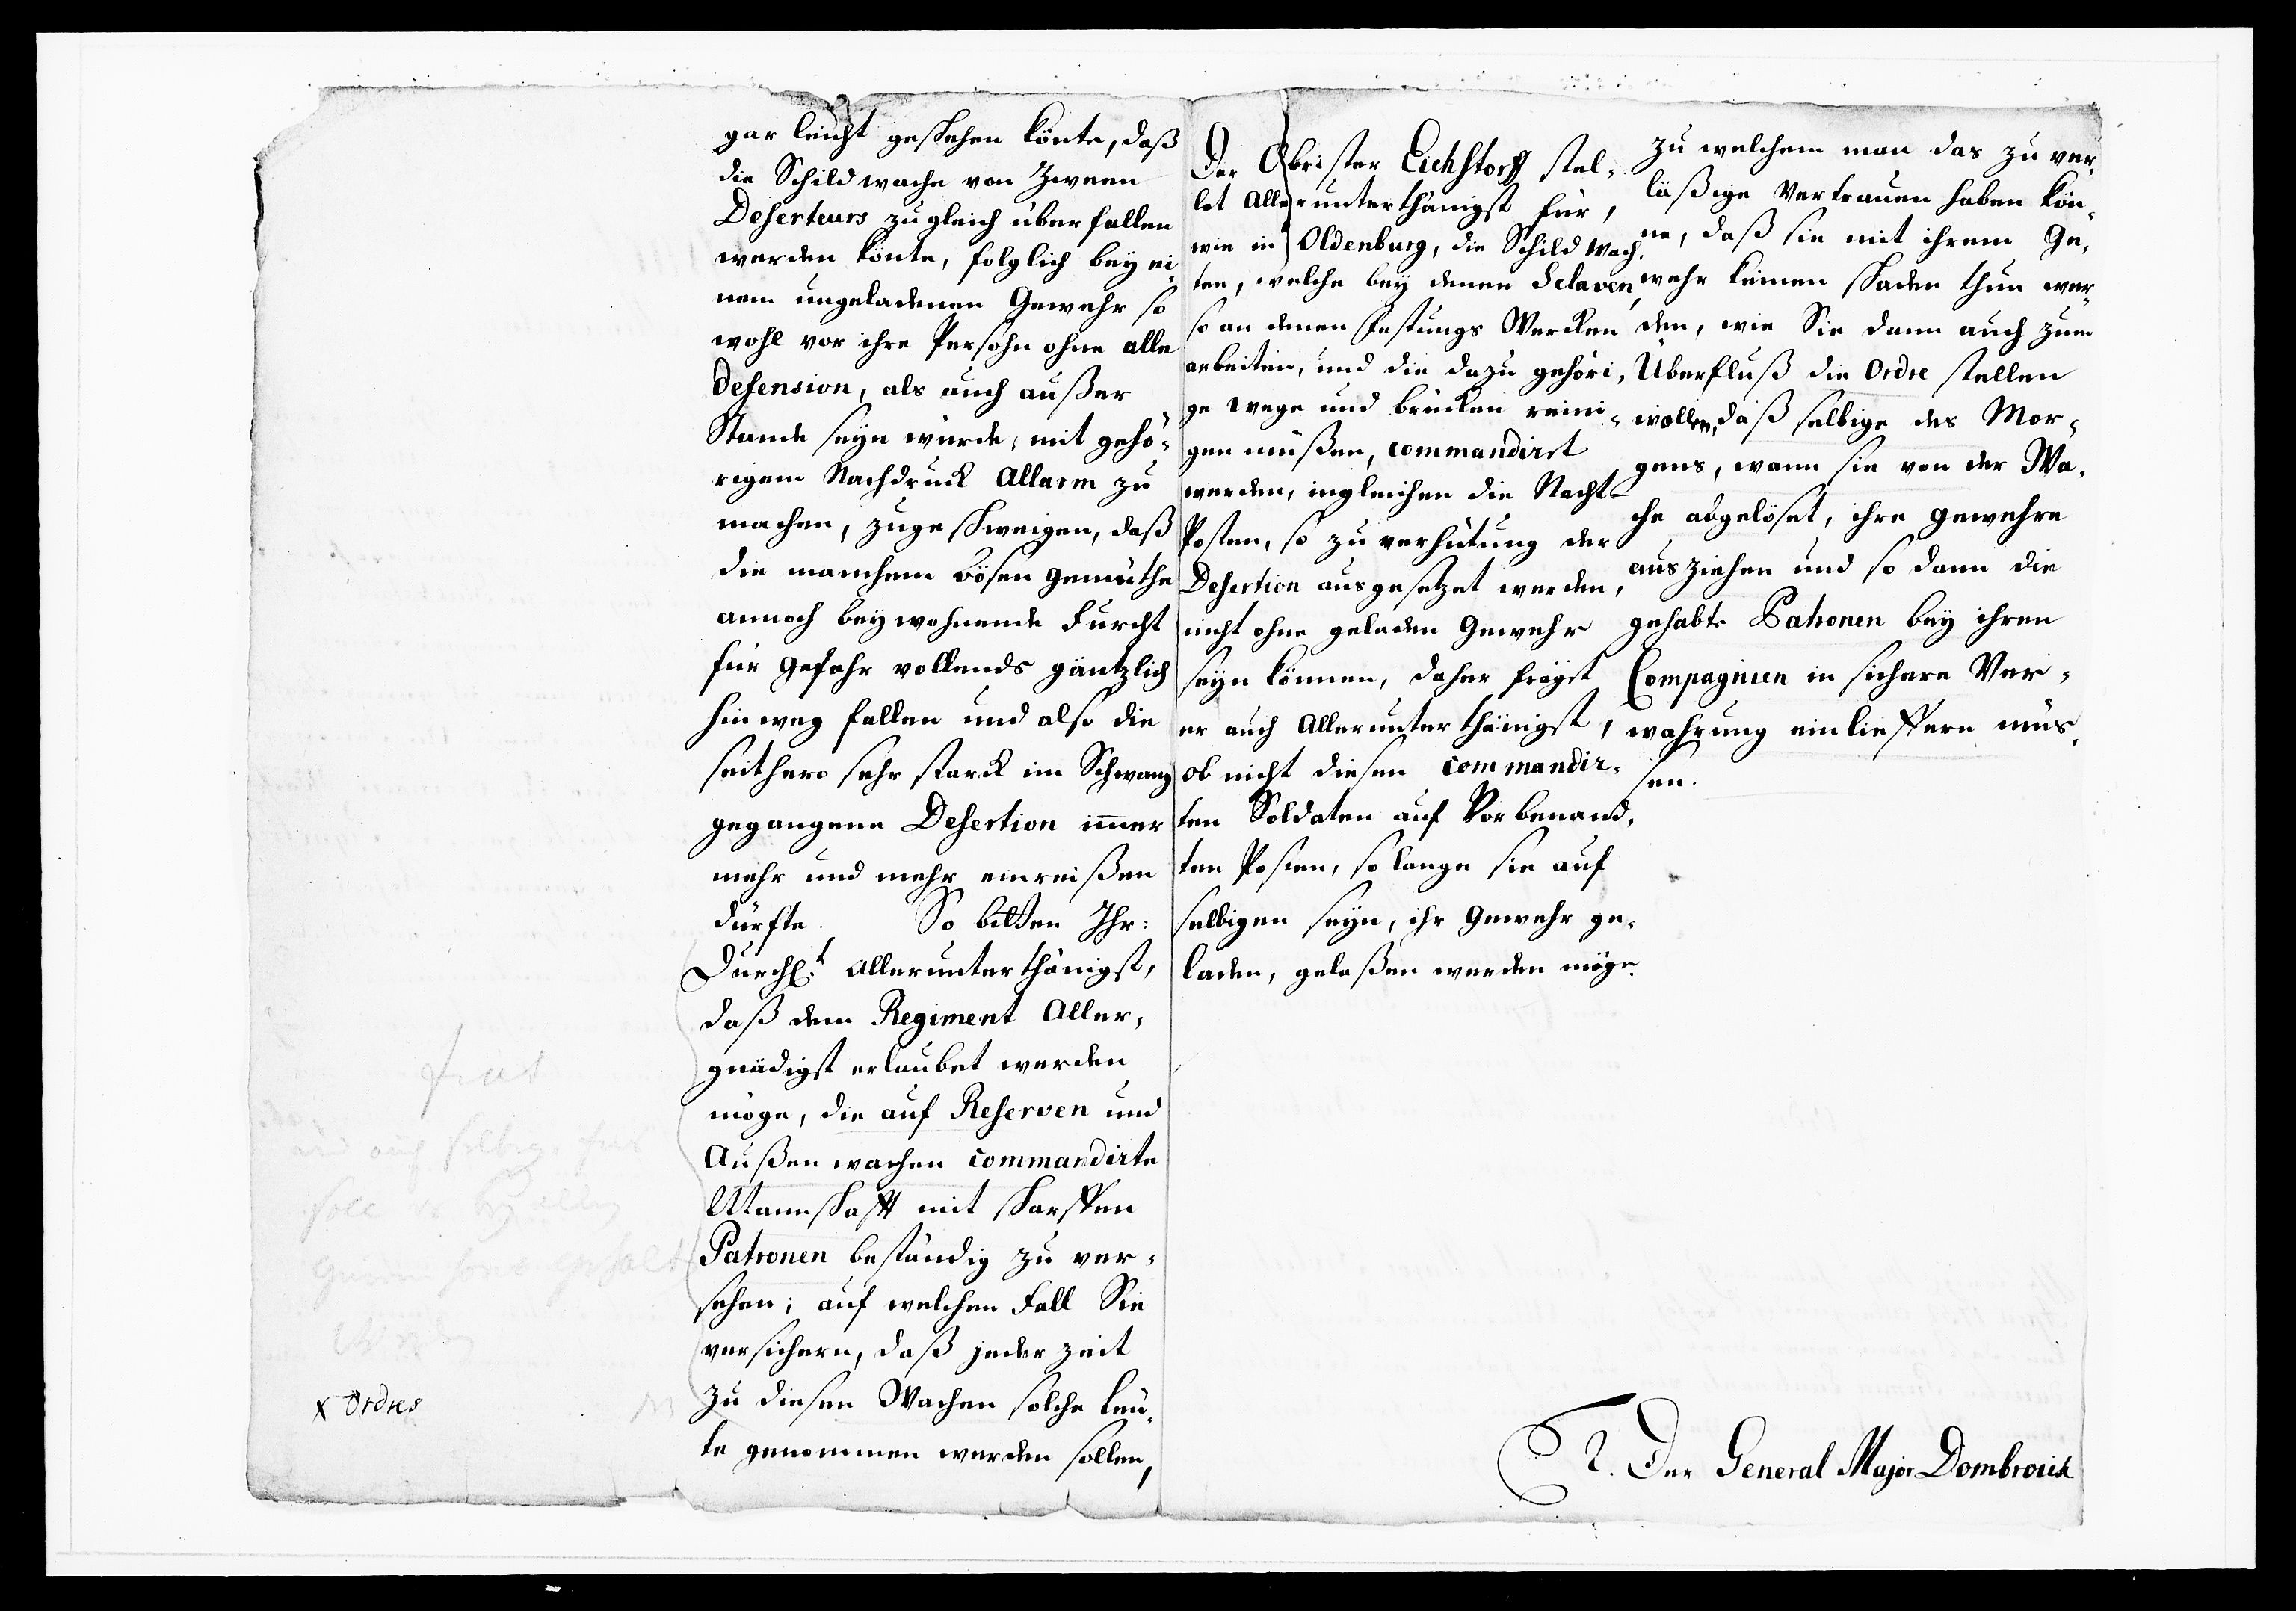 gar leicht geschehen könte, daß
die Schildwache von Zween
Deserteurs zugleich überfallen
werden könte, folglich bey ei¬
nem ungeladenen Gewehr so
wohl vor ihre Persohn ohne alle
Defension, als auch außer
Stande seyn würde, mit gehö¬
rigem Nachdruck Allarm zu
machen, zugeschweigen, daß
die manchem bösen Gemüthe
annoch beywohnende Furcht
für Gefahr vollends gäntzlich
hinweg fallen und also die
seithero sehr starck im Schwang
gegangene Desertion immer
mehr und mehr einreißen
dürfte. So bitten Ihr:
Durchl.t Allerunterthänigst,
daß dem Regiment Aller¬
gnädigst erlaubet werden
möge, die auf Reserven und
Außenwachen commandirte
Mannschafft mit scharffen
Patronen beständig zu ver¬
sehen; auf welchen Fall Sie
versichern, daß jeder Zeit
zu diesen Wachen solche Leu¬
te genommen werden sollen,
x Ordres
fiat
auch selbige
soll
zu welchem man das zuver¬
läßige Vertrauen haben kön¬
ne, daß sie mit ihrem Ge¬
wehr keinen Schaden thun wer¬
den, wie Sie dann auch zum
Überfluß die Ordre stellen
wollen, daß selbige des Mor¬
gens, wann sie von der Wa¬
che abgelöset, ihre Gewehre
ausziehen und so dann die
gehabte Patronen bey ihren
Compagnien in sichere Ver¬
wahrung einlieffern müs¬
sen.
Der Obrister Eichstorff stel¬
let Allerunterthänigst für,
wie in Oldenburg, die Schildwach¬
ten, welche bey denen Sclaven,
so an denen Festungs Wercken
arbeiten, und die dazu gehöri¬
ge Wege und brücken reini¬
gen müßen, commandiret
werden, ingleichen die Nacht¬
Posten, so zu verhütung der
Desertion ausgesetzet werden,
nicht ohne geladen Gewehr
seyn können, daher frägt
er auch Allerunterthänigst,
ob nicht diesen commandir¬
ten Soldaten auf Vorbenand¬
ten Posten, so lange sie auf
selbigen seyn, ihr Gewehr ge¬
laden, gelaßen werden möge.
2. Der General Major Dombroick